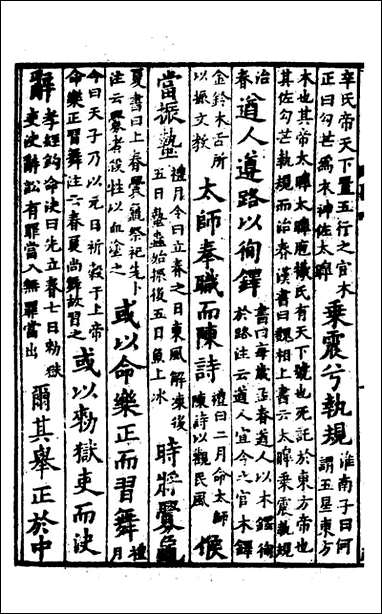 辛氏帝天下置五行之官木
正曰勾芒為木神佐太皞
乘震兮執規
淮南子曰何
謂五星東方
木也其帝太皞太皞庖犧氏有天下號也死託於東方帝也
其佐勾芒執規而治春漢書曰魏相上書云太皞乘震執規
治
春
遒人遵路以徇鐸
書曰每歲孟春遒人以木鐸徇
於路注云遒人宣令之官木鐸
金鈴木舌所
以振文教
太師奉職而陳詩
禮曰二月命太師
陳詩以觀民風
候
當振蟄
禮月令曰立春之日東風解凍後
五日蟄蟲始振後五日魚上冰
時將釁龜
夏書曰上春釁龜祭祀先卜
注云釁者殺牲以血塗之
或以命樂正而習舞
禮
月
令曰天子乃以元日祈穀于上帝
命樂正習舞注云春夏尚舞故習之
或以勑獄吏而決
辭
孝經鉤命決曰先立春七日勑獄
吏決辭訟有罪當入無罪當出
爾其舉正於中